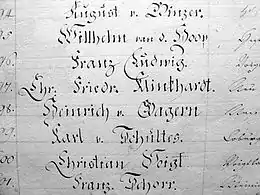 August v. Binzer.
95. Willhelm van d. Hoop
96. Franz Ludwig.
97. Chr. Friedr. Klinkhardt.
98. Heinrich v. Gagern
99. Karl v. Schultes.
00. Christian Voigt
Franz Schorr.